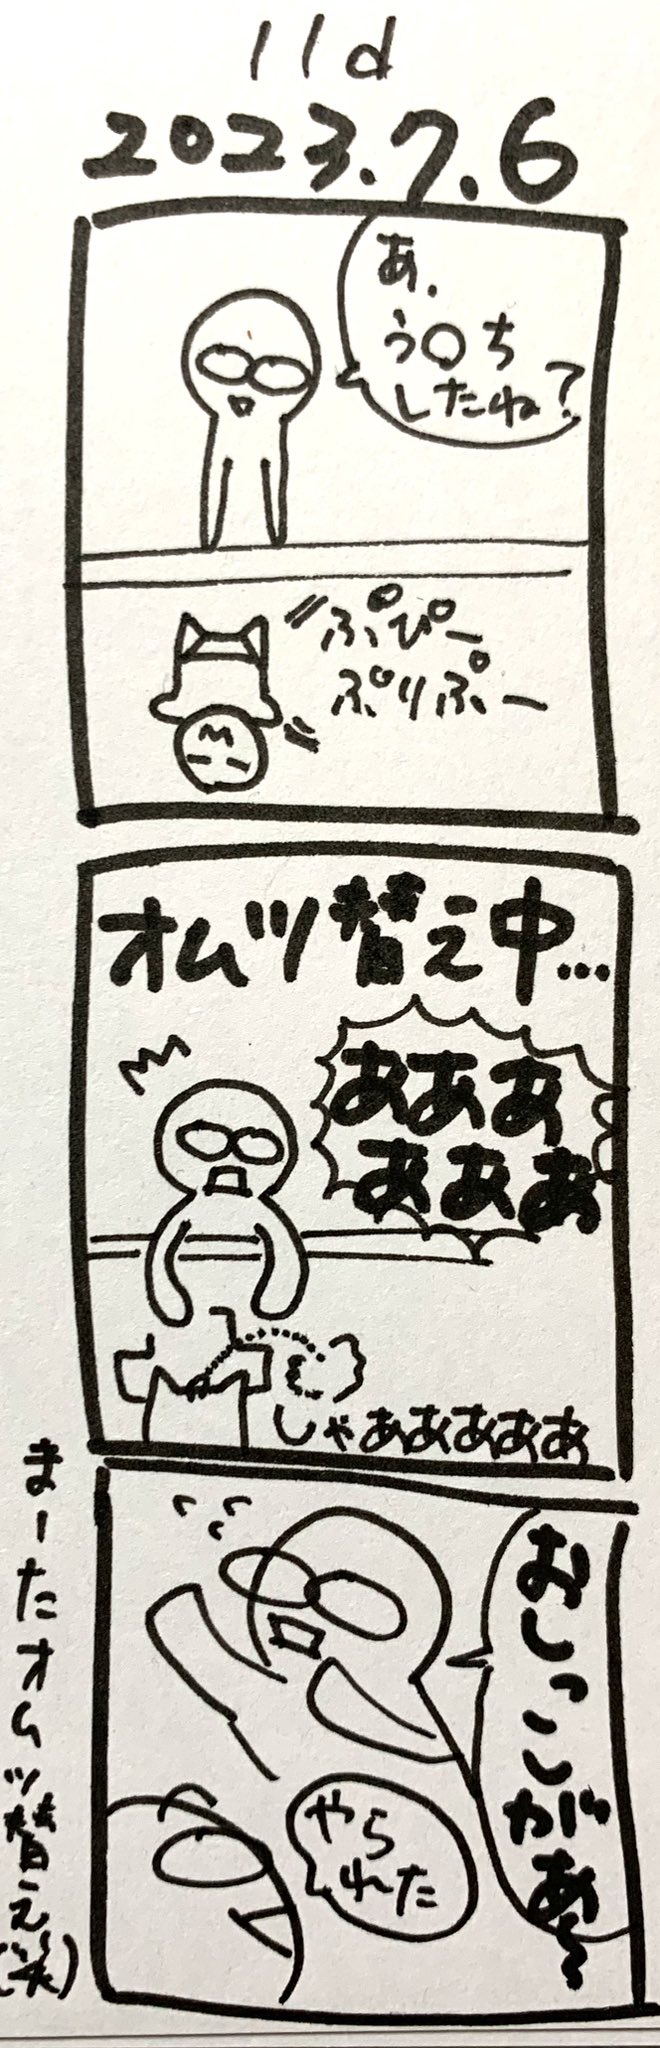 11d
2023.7.6
あ、
う〇ち
したね?
ぷぴー
ぷりぷー
オムツ替え中…
あああ
あああ
しゃあああああ
おしっこがあ〜
やら
れた
まーたオムツ替え(笑)